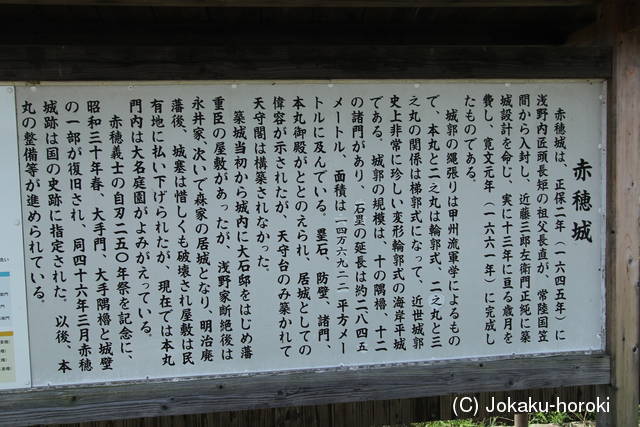 赤穂城
赤穂城は、正保二年（一六四五年）に
浅野内匠頭長矩の祖父長直が、常陸国笠
間から入封し、近藤三郎左衛門正純に築
城設計を命じ、実に十三年に亘る歳月を
費し、寛文元年（一六六一年）に完成し
たものである。
城郭の縄張りは甲州流軍学によるもの
で、本丸と二之丸は輪郭式、二之丸と三
之丸の関係は梯郭式になって、近世城郭
史上非常に珍しい変形輪郭式の海岸平城
である。城郭の規模は、十の隅櫓、十二
の諸門があり、石塁の延長は約二八四五
メートル、面積は一四万六九二二平方メー
トルに及んでいる。塁石、防壁、諸門、
本丸御殿がととのえられ、居城としての
偉容が示されたが、天守台のみ築かれて
天守閣は構築されなかった。
築城当初から城内に大石邸をはじめ藩
重臣の屋敷があったが、浅野家断絶後は
永井家、次いで森家の居城となり、明治廃
藩後、城塁は惜しくも破壊され屋敷は民
有地に払い下げられたが、現在では本丸
門内は大名庭園がよみがえっている。
赤穂義士の自刃二五〇年祭を記念に、
昭和三十年春、大手門、大手隅櫓と城壁
の一部が復旧され、同四十六年三月赤穂
城跡は国の史跡に指定された。以後、本
丸の整備等が進められている。
(C) Jokaku-horoki